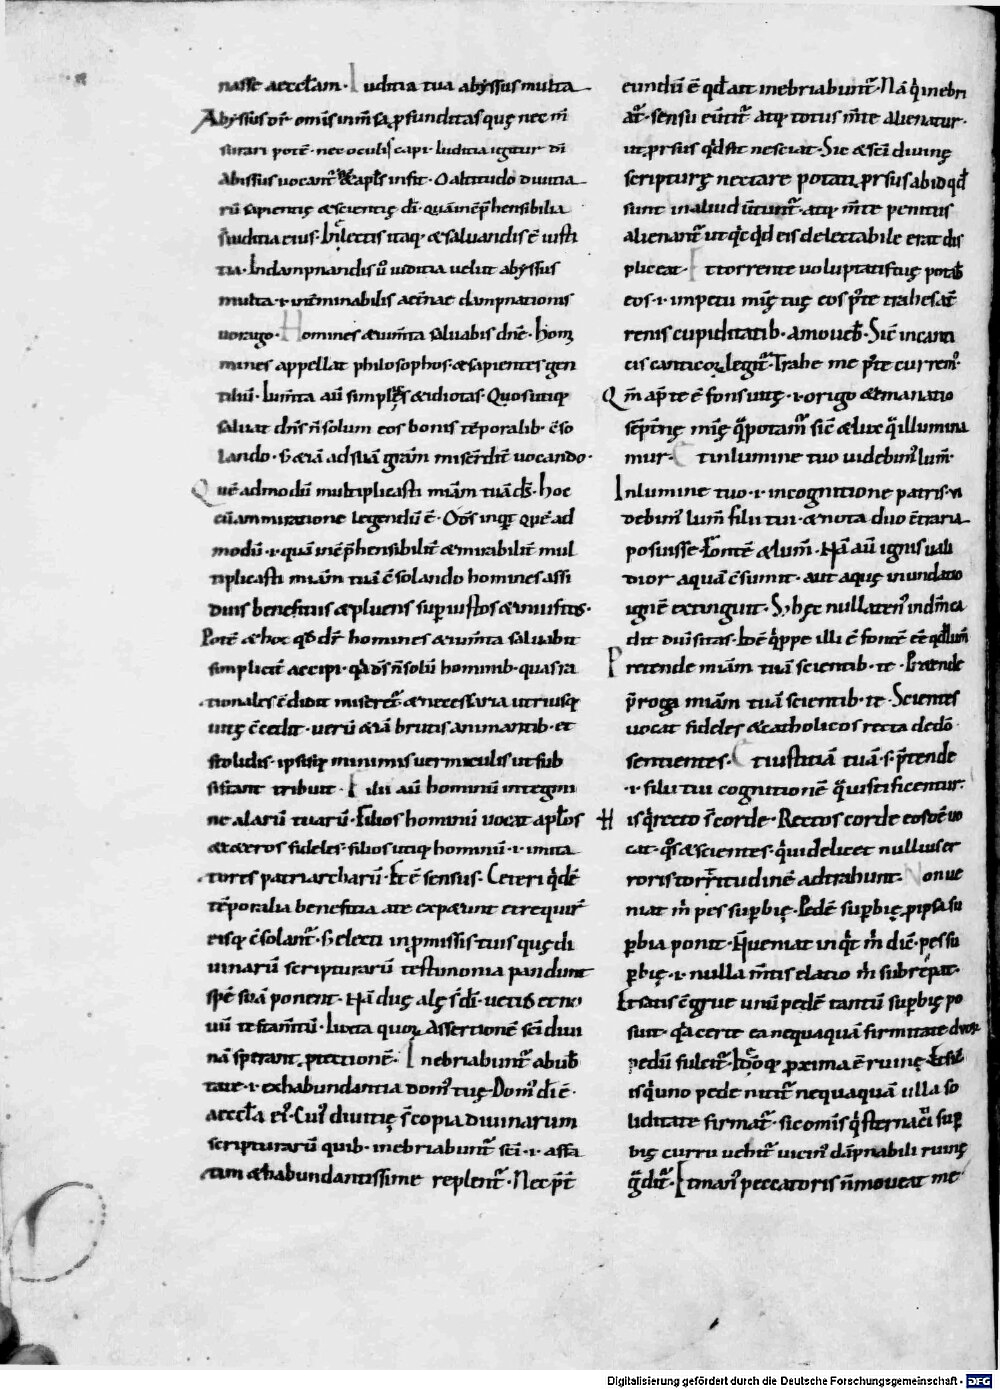 nasse aeccl̅am. Iuditia tua abyssus multa
Abyssus dr̅ om̅is inm̅sa p̱funditas quę nec m̅
surari pote̅. nec oculis capi. Iuditia igitur di̅
abissus uocant᷑ apl̅s insit. O altitudo diuitia
ru̅ sapientię & scientię di̅. qua̅ inc̅p̅hensibilia
s̅ iuditia eius. In electis itaq; & saluandis e̅ iusti
tia. In dampnandis u̅ iuditia uelut abyssus
multa .i. int̅minabilis aet̅nae dampnationis
uorago. Homines & ium̅ta saluabis dn̅e. hom
mines appellat philosophos. & sapientes gen
tiliu̅. Ium̅ta au̅ simplices & idiotas. Quos utiq;
saluat dn̅s n̅ solum eos bonis te̅poralib. c̅so
lando. s; & ia̅ ad sua̅ gra̅m miserd̅it̅ uocando.
Que̅ admodu̅ multiplicasti mia̅m tua̅ ds̅. hoc
cu̅ ammiratione legendu̅ e̅. O ds̅ inquit que̅ ad
modu̅ .i. qua̅ inc̅p̅hensibilit̅ & mirabilit̅ mul
tiplicasti mia̅m tua̅ c̅solando homines assi
duis benefitiis & pluens sup̱ iustos & iniustos.
Pote̅ & hoc qd̅ dr̅ homines & ium̅ta saluabis
simplicit̅ accipi. quia ds̅ n̅ solu̅ hominib. quos ra
tionales c̅didit miseret᷑ & necessaria utriusq;
uitę c̅cedit. ueru̅ & ia̅ brutis animantib. et
stolidis. ipsisq; minimis uermiculis ut sub
sistant tribuit. Filii au̅ hominu̅ in tegmi
ne alaru̅ tuaru̅. Filios hominu̅ uocat apl̅os
& caeteros fideles. filios utiq; hominu̅ .i. imita
tores patriarcharu̅. Et e̅ sensus. Ceteri qide̅
te̅poralia benefitia a te exp&unt et requir̅
eisq; c̅solant᷑. s; electi in p̱missis tuis quę di
uinaru̅ scripturaru̅ testimonia pandunt
spe̅ sua̅ ponent. Na̅ duę alę s̅ di̅. uetus et no
uu̅ testam̅tu̅. Iuxta quoꝝ assertione̅ sci̅ diui
na̅ sperant p̱tectione̅. Inebriabunt᷑ ab ub̅
tate .i. ex habundantia dom᷒ tuę. Dom᷒ di̅ e̅.
aeccl̅a ei᷒. Cui᷒ diuitię s̅ copia diuinarum
scripturaru̅ quib. inebriabunt᷑ sci̅ .i. affa
tim & habundantissime replent᷑. Nec p̅t̅
eundu̅ e̅ qd̅ ait inebriabunt᷑. Na̅ qi inebri
at᷑. sensu eu̅tit᷑ atq; totus m̅te alienatur.
ut p̱rsus qid sit nesciat. Sic & sci̅ diuinę
scripturę nectare potati p̱rsus ab id qd̅
sunt in aliud u̅tunt᷑. atq; m̅te penitus
alienant᷑ ut qicqd eis delectabile erat dis
pliceat. Et torrente uoluptatis tuę potab̅
eos .i. impetu mi̅ę tuę eos p̱ te trahes a t̅
renis cupiditatib. amoueb̅. Sic̅ in canti
cis canticoꝝ legit᷑. Trahe me p̱ te currem᷒.
Qm̅ apud te e̅ fons uitę .i. origo & emanatio
sempit̅nę mi̅ę qua potam᷑ sic̅ & lux qua illumina
mur. Et in lumine tuo uidebim᷒ lum̅.
In lumine tuo .i. in cognitione patris. ui
debim᷒ lum̅ filii tui. & nota duo c̅traria
posuisse. Fonte̅ & lum̅. Na̅ au̅ ignis uali
dior aqua̅ c̅sumit. aut aquę inundatio
igne̅ extinguit. S; hęc nullaten᷒ in dm̅ ca
dit diu̅sitas. Ide̅ qippe illi e̅ fonte̅ e̅e̅ qd̅ lum̅.
Pretende mia̅m tua̅ scientib. te. Pretende
p̅roga mia̅m tua̅ scientib. te. Scientes
uocat fideles & catholicos recta de do̅
sentientes. Et iustitia̅ tua̅ .s. p̅tende
.i. filii tui cognitione̅ qua iustificentur.
His qi recto s̅ corde. Rectos corde eosde̅ uo
cat. qos & scientes. qi uidelicet nullius er
roris tortitudine̅ adtrahunt. Non ue
niat m̅ pes sup̱bię. Pede̅ sup̱bię p̱ ipsa su
p̱bia ponit. N̅ ueniat inqit m̅ dic̅. pes su
p̱bię .i. nulla m̅tis elatio m̅ subrepat.
Et satis c̅grue unu̅ pede̅ tantu̅ sup̱bię po
suit. qia certe ea nequaqua̅ firmitate duoꝝ
pedu̅ fulcit᷑. Ideoq; p̱xima e̅ ruinę. Et sic̅
is qi uno pede nitit᷑ nequaqua̅ ulla so
liditate firmat᷑. sic om̅is qi sup̱
bię curru uehit᷑ uicin᷒ da̅pnabili ruinę
gradit᷑. Et man᷒ peccatoris n̅ moueat me
Digitalisierung gefördert durch die Deutsche Forschungsgemeinschaft - DFG